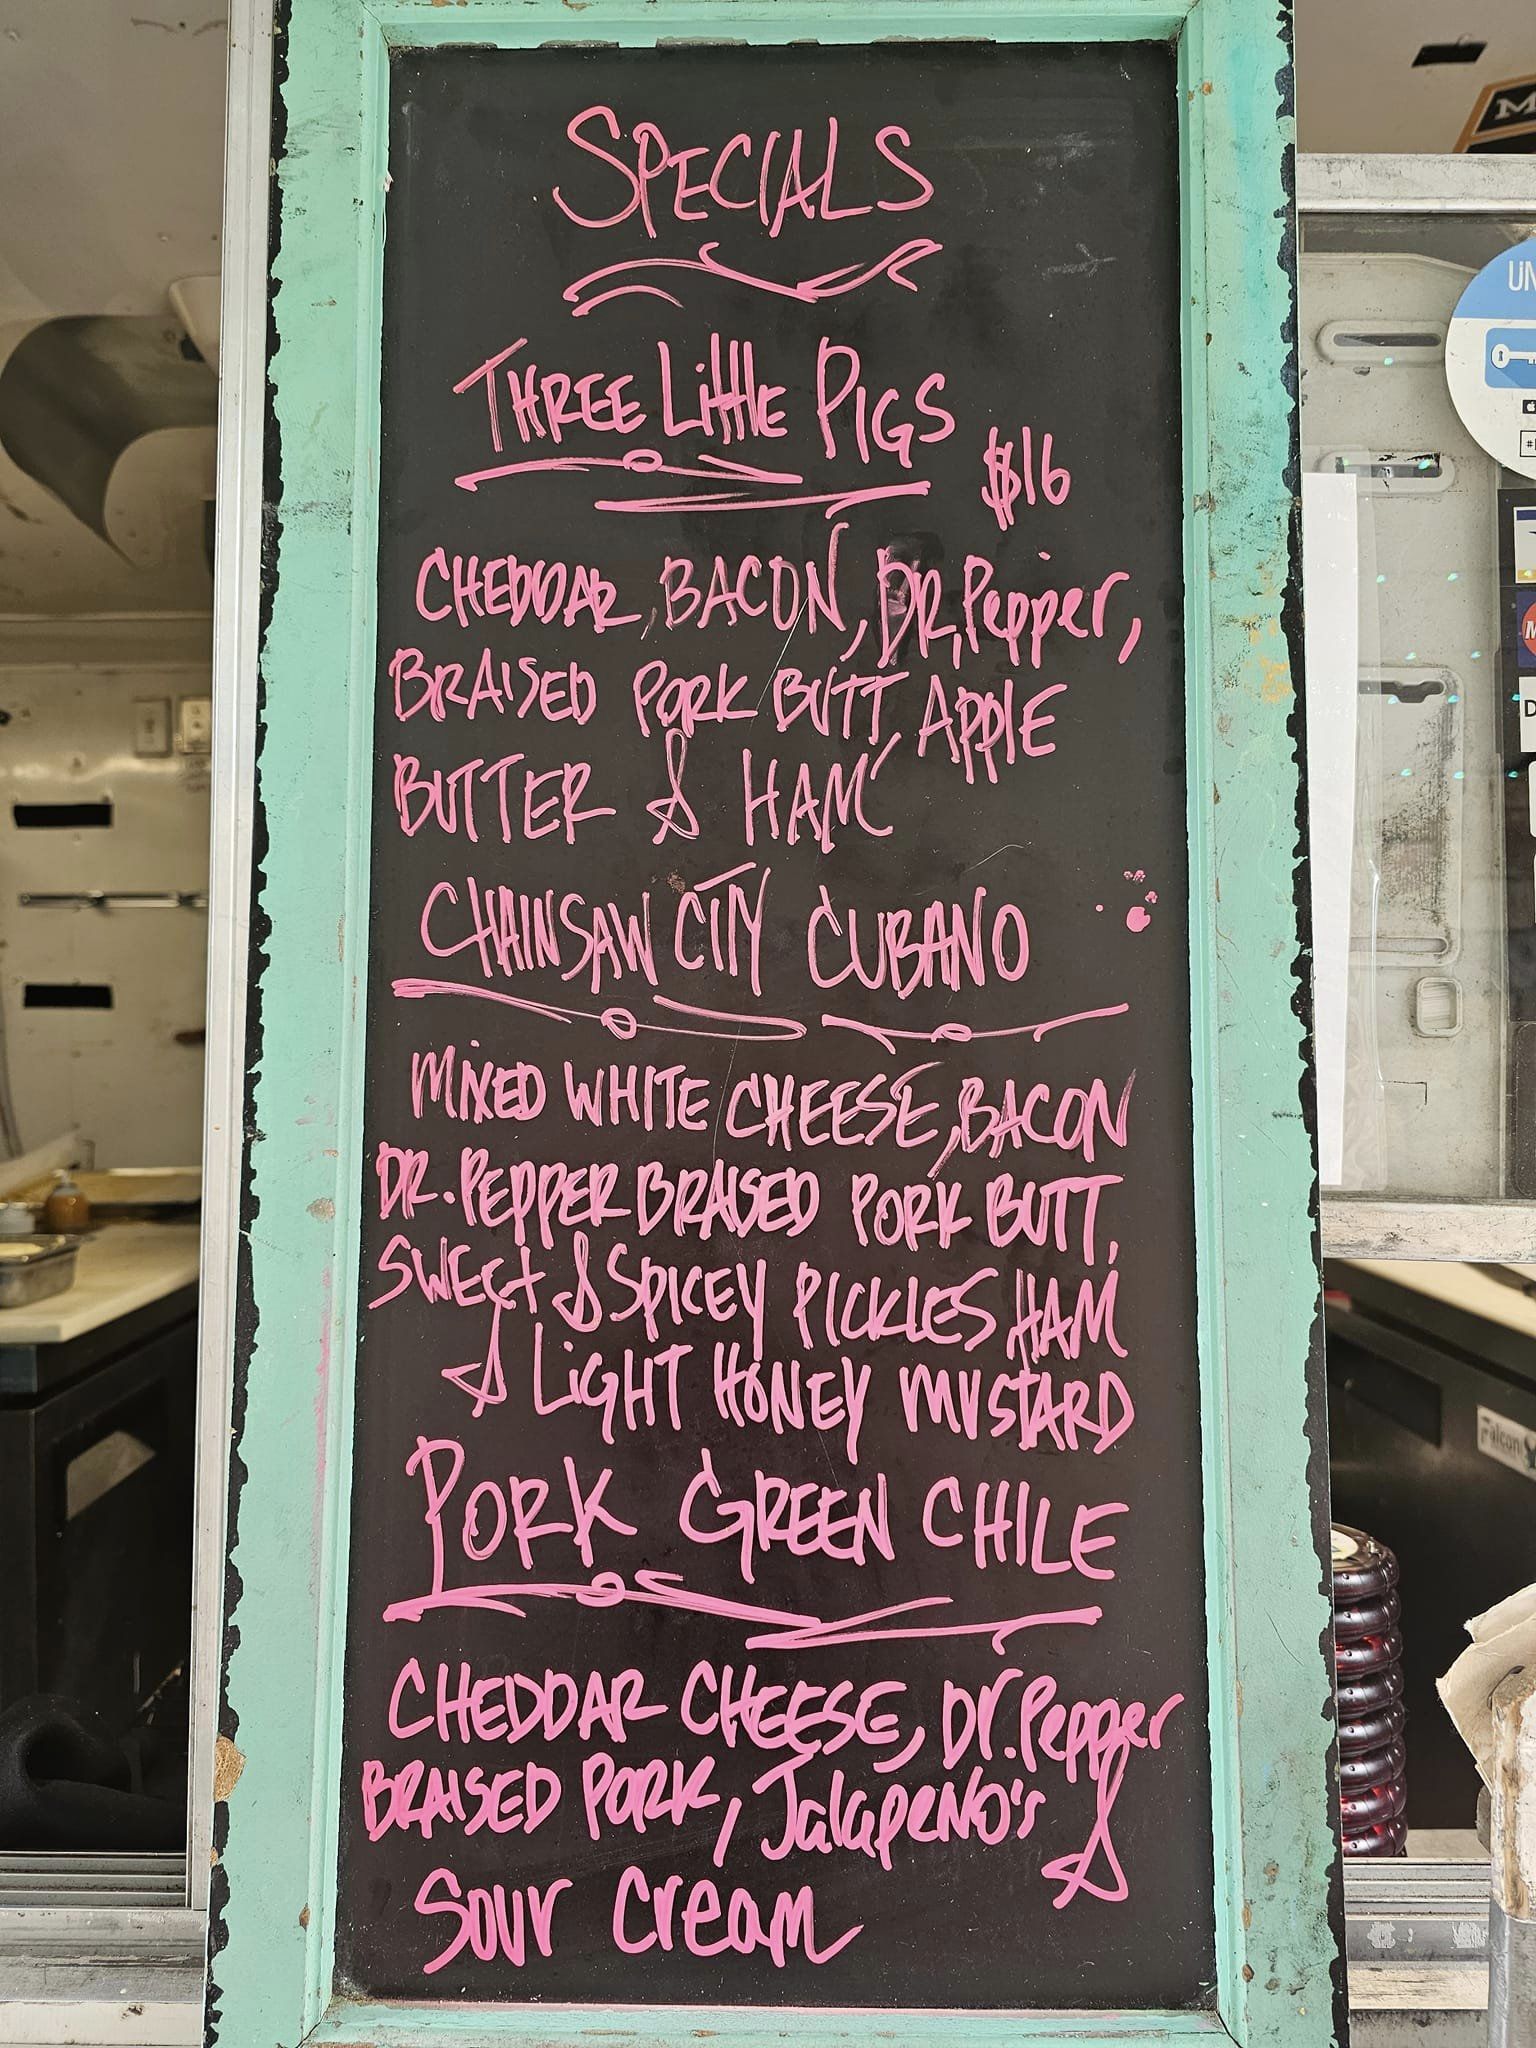 SPECIALS
THREE Little PIGS
$16
CHEDDAR, BACON, DR. Pepper,
BRAISED PORK BUTT, APPLE
BUTTER & HAM
CHAINSAW CITY CUBANO
MIXED WHITE CHEESE, BACON
DR. PEPPER BRAISED PORK BUTT,
SWEET & SPICEY PICKLES HAM
& LiGHT HONEY MUSTARD
PORK GREEN CHILE
CHEDDAR CHEESE, Dr. Pepper
BRAISED PORK, JalapeNO's &
Sour Cream
UN
M